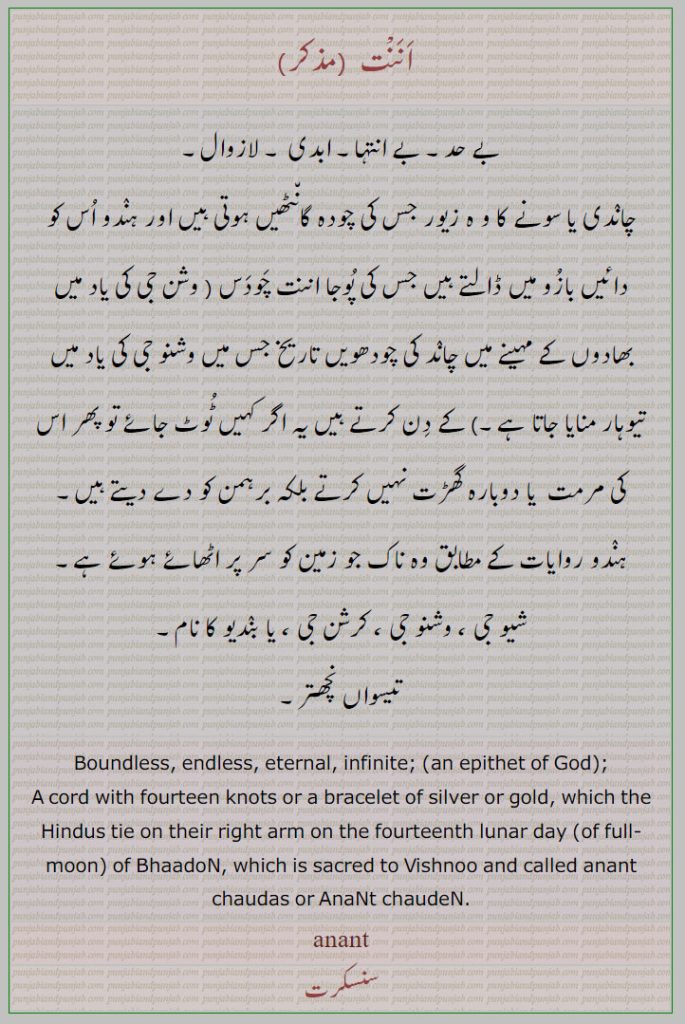 اَنَنْت (مذکر)
بے حد ۔ بے انتہا ۔ ابدی ۔ لازوال ۔
چانْدی یا سونے کا و ہ زیور جس کی چودہ گانّٹھیں ہوتی ہیں اور ہنْدو اُس کو
دائیں بازُو میں ڈالتے ہیں جس کی پُوجا اننت چَودَس ( وشن جی کی یاد میں
بھادوں کے مہینے میں چانْد کی چودھویں تاریخ جس میں وشنو جی کی یاد میں
تیوہار منایا جاتا ہے ۔) کے دِن کرتے ہیں یہ اگر کہیں ٹُوٹ جائے تو پھر اس
کی مرمت یا دوبارہ گھڑت نہیں کرتے بلکہ برہمن کو دے دیتے ہیں ۔
ہنْدو روایات کے مطابق وہ ناک جو زمین کو سر پر اٹھائے ہوئے ہے ۔
شیو جی ، وشنو جی ، کرشن جی ، یا بنْدیو کا نام ۔
تیسواں نچھتر ۔
Boundless, endless, eternal, infinite; (an epithet of God);
A cord with fourteen knots or a bracelet of silver or gold, which the
Hindus tie on their right arm on the fourteenth lunar day (of full-
moon) of BhaadoN, which is sacred to Vishnoo and called anant
chaudas or AnaNt chaudeN.
anant
سنسکرت